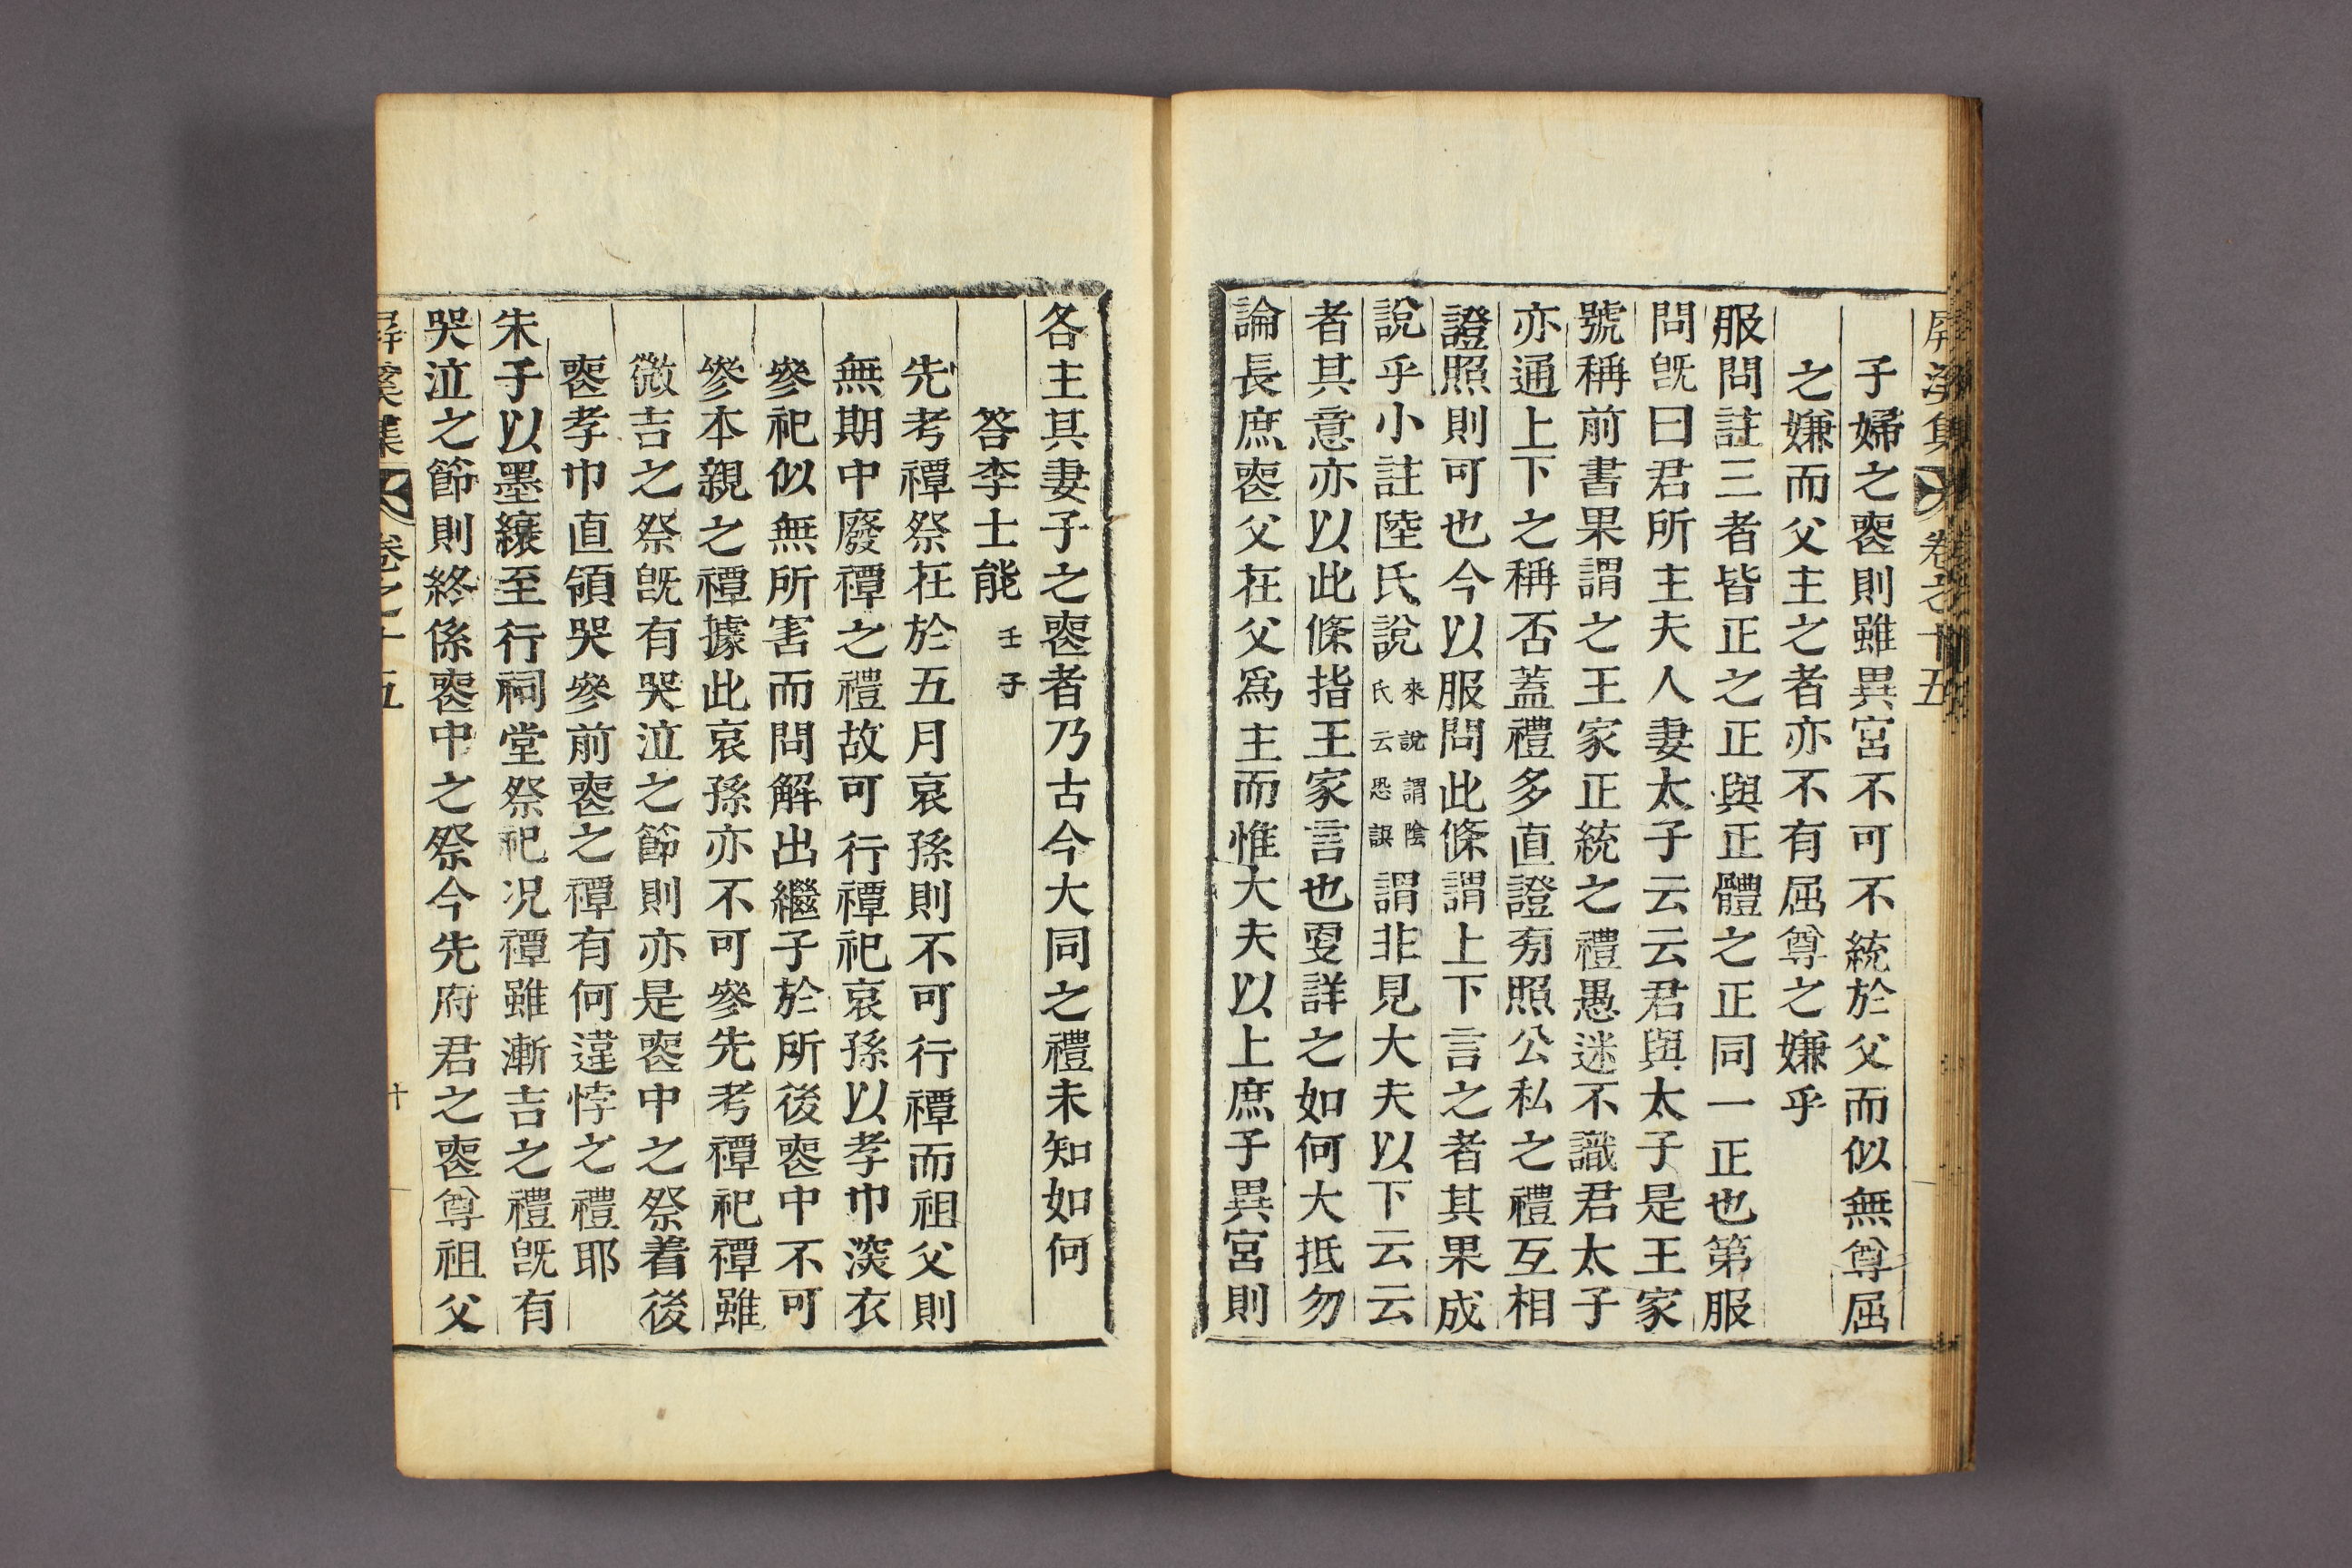 屛溪集 卷之十五
子婦之喪則雖異宮不可不統於父而似無尊屈
之嫌而父主之者亦不有屈尊之嫌乎
服問註三者皆正之正與正體之正同一正也第服
問旣曰君所主夫人妻太子云云君與太子是王家
號稱前書果謂之王家正統之禮愚迷不識君太子
亦通上下之稱否蓋禮多直證旁照公私之禮互相
證照則可也今以服問此條謂上下言之者其果成
說乎小註陸氏說來說謂陰氏云恐誤謂非見大夫以下云云
者其意亦以此條指王家言也更詳之如何大抵勿
論長庶喪父在父爲主而惟大夫以上庶子異宮則
各主其妻子之喪者乃古今大同之禮未知如何
答李士能壬子
先考禫祭在於五月哀孫則不可行禫而祖父則
無期中廢禫之禮故可行禫祀哀孫以孝巾深衣
參祀似無所害而問解出繼子於所後喪中不可
參本親之禫據此哀孫亦不可參先考禫祀禫雖
微吉之祭旣有哭泣之節則亦是喪中之祭着後
喪孝巾直領哭參前喪之禫有何違悖之禮耶
朱子以墨縗至行祠堂祭祀况禫雖漸吉之禮旣有
哭泣之節則終係喪中之祭今先府君之喪尊祖父
屛溪集 卷之十五 十